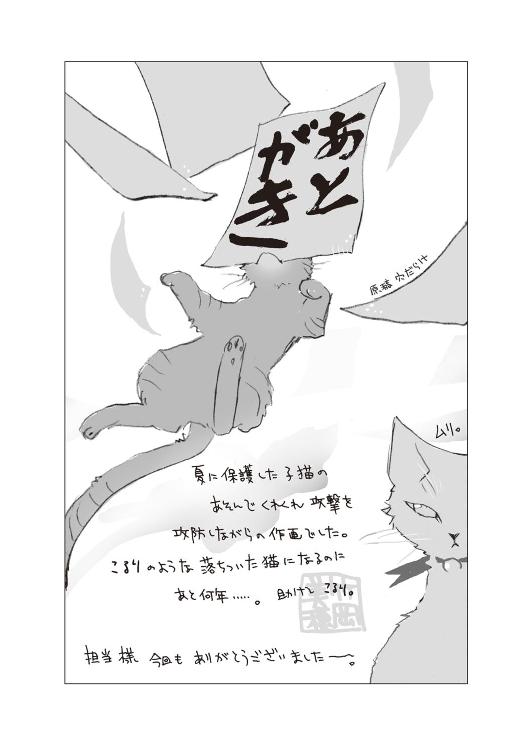 あと
がき
原稿 穴だらけ
ムリ。
夏に保護した子猫の
あそんでくれくれ攻撃を
攻防しながらの作画でした。
こるりのような落ちついた猫になるのに
あと何年……。 助けてこるり。
担当様 今回も ありがとうございましたー。